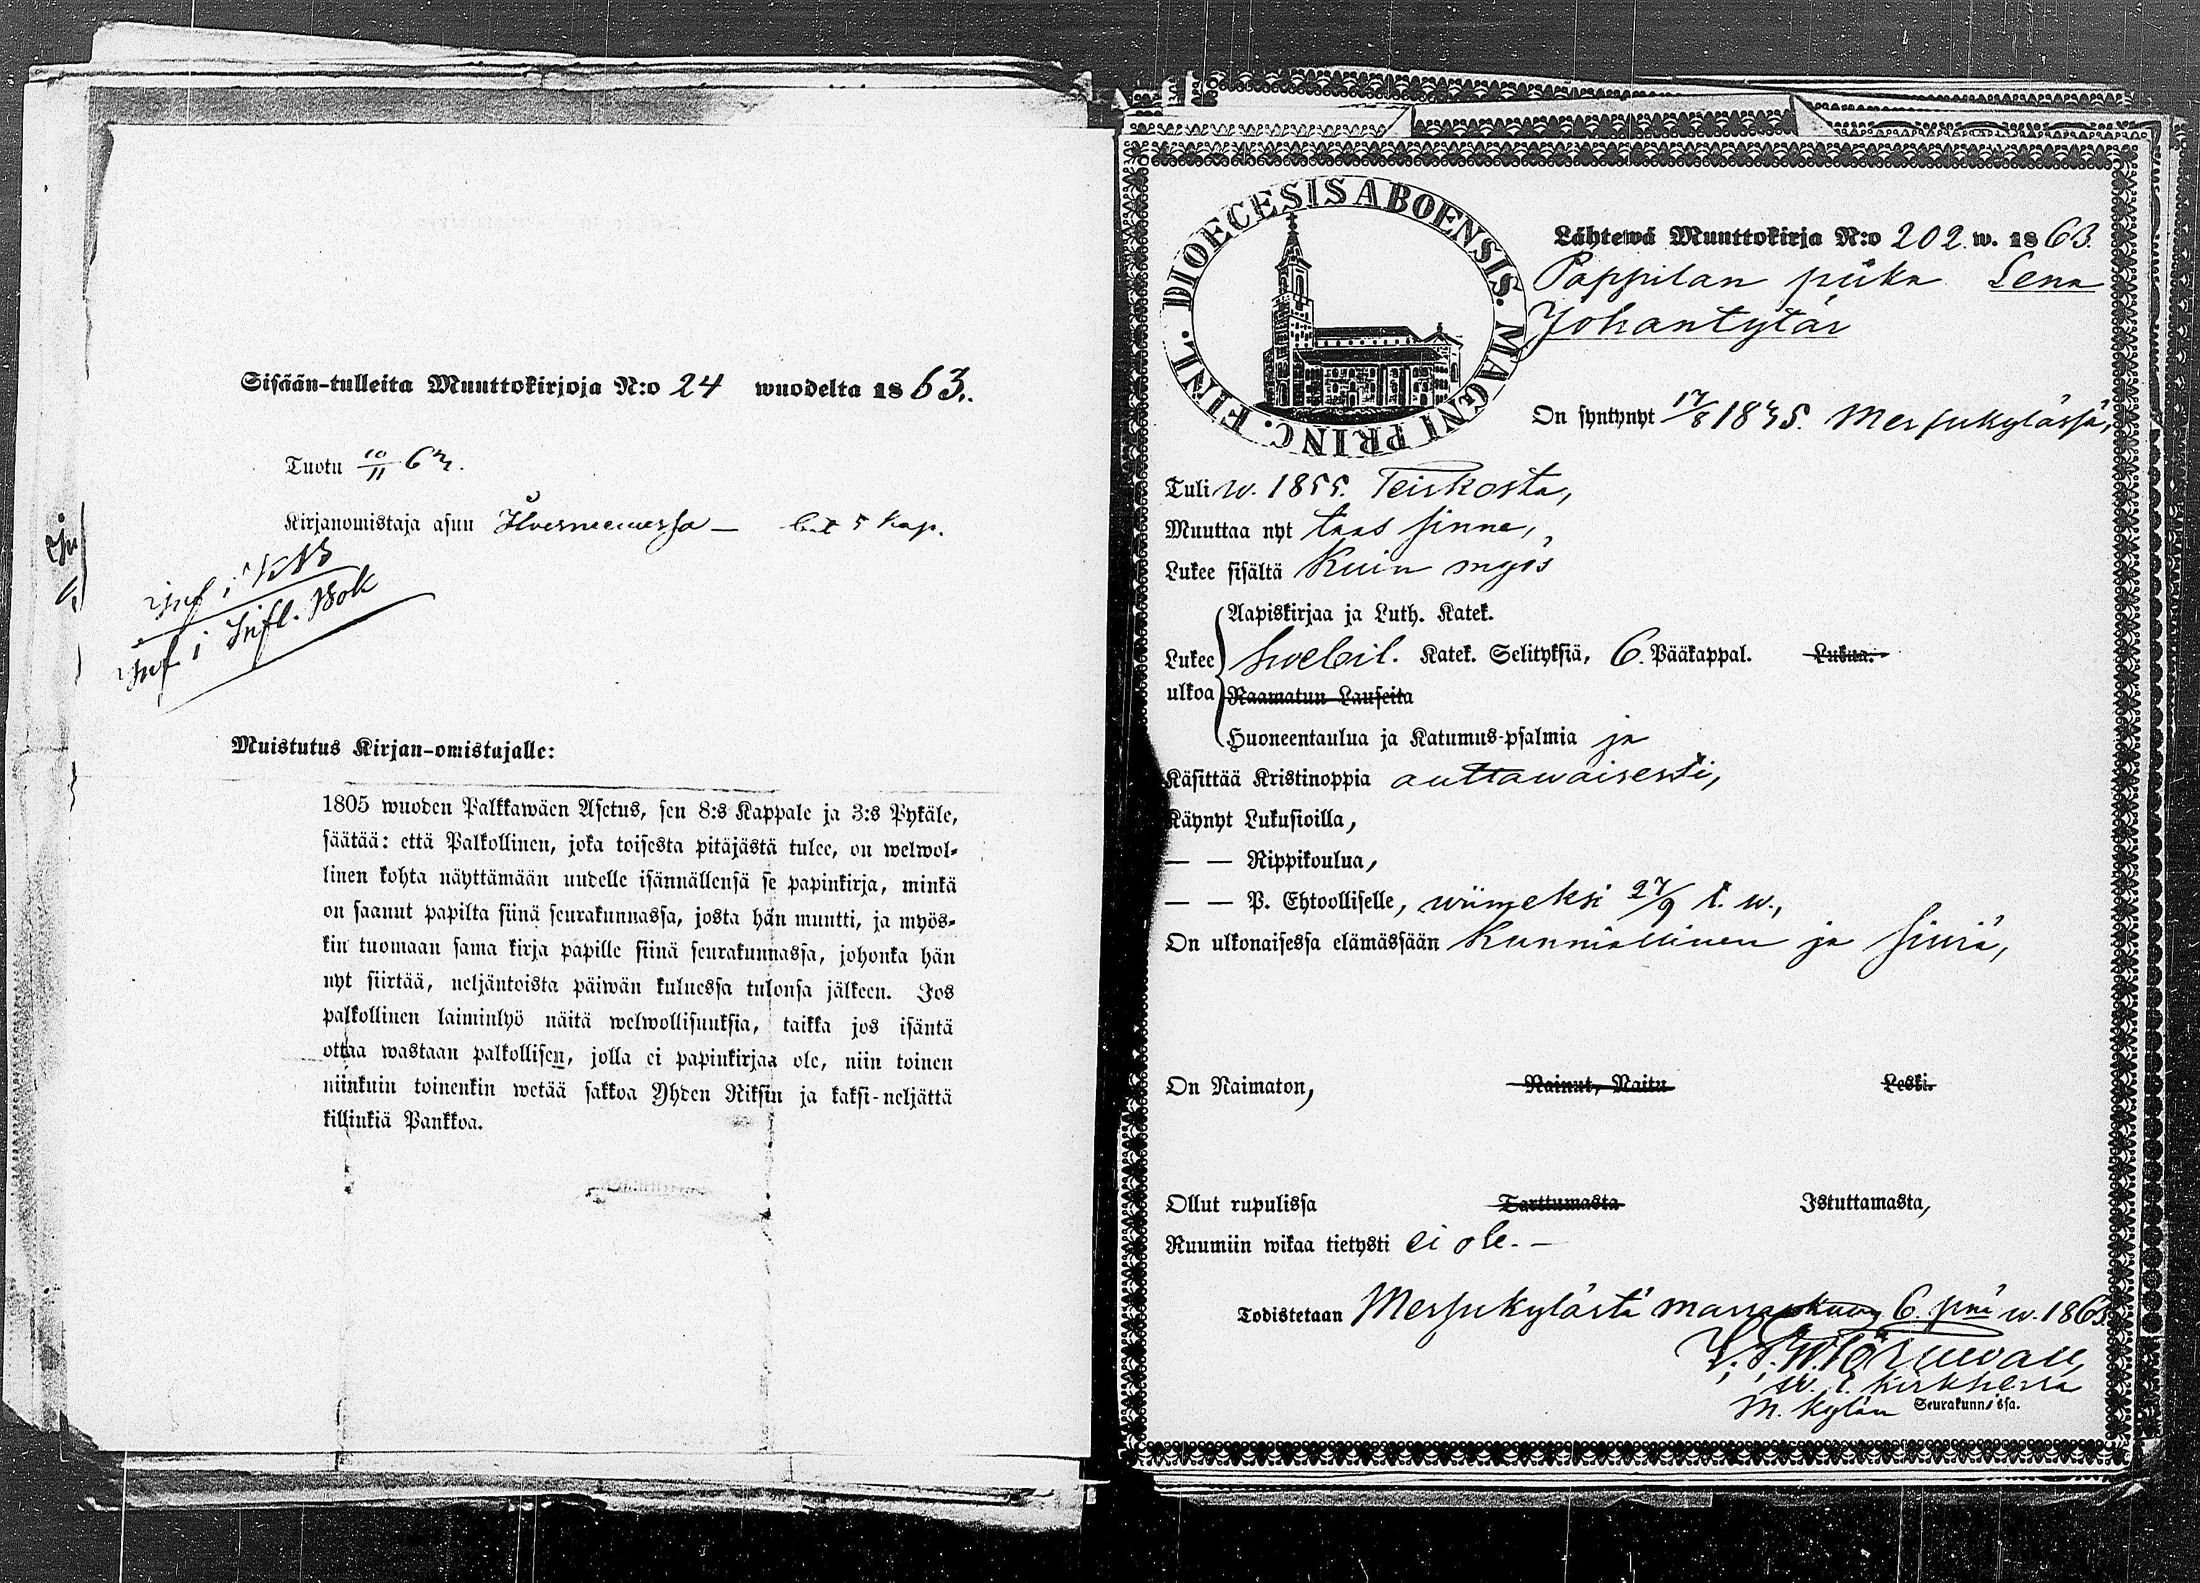 Sisään-tulleita Muuttokirjoja N:o 24 wuodelta 1863.
Tuotu 10/11 63.
Kirjanomistaja asuu
inf i KB
inf i Infl. Bok
Muistutus Kirjan-omistajalle:
1805 wuoden Palkkawäen Asetus, sen 8:s Kappale ja 3:s Pykäle,
säätää: että Palkollinen, joka toisesta pitäjästä tulee, on welwol-
linen kohta näyttämään uudelle isännällensä se papinkirja, minkä
on saanut papilta siinä seurakunnassa, josta hän muutti, ja myös-
kin tuomaan sama kirja papille siinä seurakunnassa, johonka hän
nyt siirtää, neljäntoista päiwän kuluessa tulonsa jälkeen. Jos
palkollinen laiminlyö näitä welwollisuuksia, taikka jos isäntä
ottaa wastaan palkollisen, jolla ei papinkirjaa ole, niin toinen
niinkuin toinenkin wetää sakkoa Yhden Riksin ja kaksi-neljättä
killinkiä Pankkoa.
DIOECESIS ABOENSIS. MAGNI PRINC. FINL.
Lähtewä Muuttokirja N:o 202. w. 1863.
Pappilan piika Lena
Johantytär
On syntynyt 17/8 1835. Messukylässä,
Tuli w. 1855. Teiskosta,
Muuttaa nyt taas sinne,
Lukee sisältä kuin myös
Aapiskirjaa ja Luth. Katek.
Lukee Swebil. Katek. Selityksiä, 6. Pääkappal. Lukua.
ulkoa Raamatun Lauseita
Huoneentaulua ja Katumus-psalmia ja
Käsittää Kristinoppia auttawaisesti,
Käynyt Lukusioilla,
— — Rippikoulua,
— — P. Ehtoolliselle, wiimeksi 27/9 t. w.,
On ulkonaisessa elämässään kunniallinen ja siwiä,
On Naimaton, Nainut, Naitu Leski.
Ollut rupulissa Tarttumasta Istuttamasta,
Ruumiin wikaa tietysti ei ole. —
Todistetaan Messukylästä marraskuun 6. pnä w. 1863.
M. kylän Seurakunnissa.